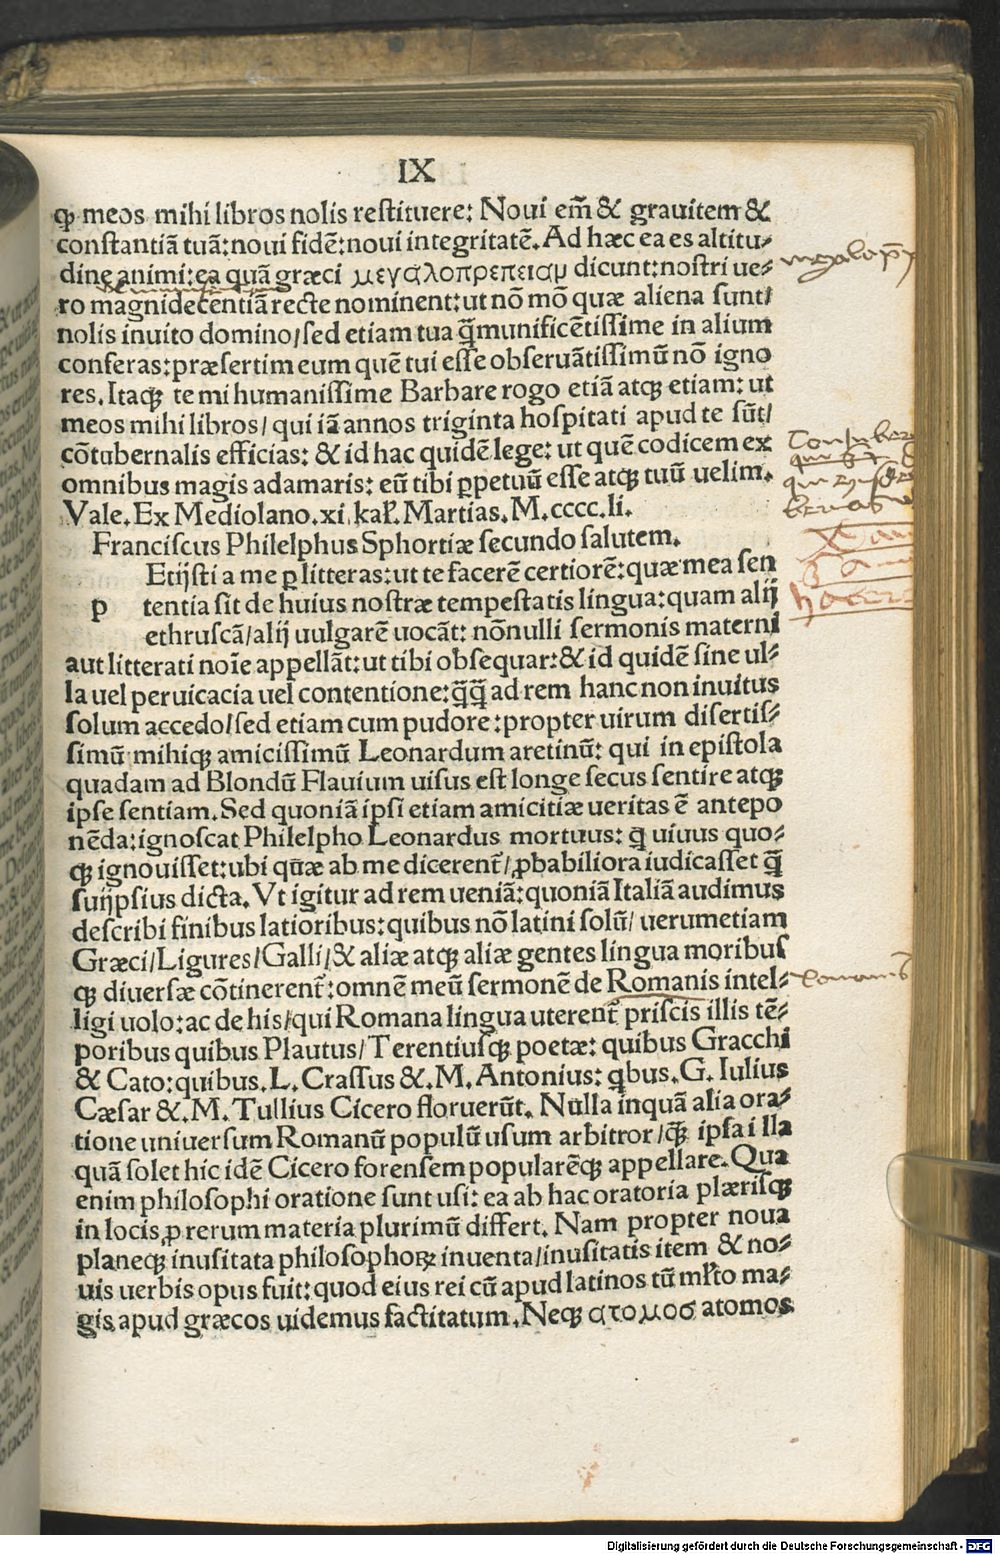 IX
ꝙ meos mihi libros nolis restituere: Noui em̃ & grauitem &
constantiã tuã: noui fidẽ: noui integritatẽ. Ad hæc ea es altitu-
dine animi: ea quã græci μεγαλοπρεπειαμ dicunt: nostri ue-
ro magnidecentiã recte nominent: ut nõ mõ quæ aliena sunt/
nolis inuito domino/ sed etiam tua q̃munificẽtissime in alium
conferas: præsertim eum quẽ tui esse obseruãtissimũ nõ igno
res. Itaqꝫ te mi humanissime Barbare rogo etiã atqꝫ etiam: ut
meos mihi libros/ qui iã annos triginta hospitati apud te sũt/
cõtubernalis efficias: & id hac quidẽ lege: ut quẽ codicem ex
omnibus magis adamaris: eũ tibi ꝑpetuũ esse atqꝫ tuũ uelim.
Vale. Ex Mediolano. xi. kał. Martias. M. cccc. li.
Franciscus Philelphus Sphortiæ secundo salutem.
Etijsti a me ꝑ litteras: ut te facerẽ certiorẽ: quæ mea sen
p tentia sit de huius nostræ tempestatis lingua: quam alij
ethruscã/ alij uulgarẽ uocãt: nõnulli sermonis materni
aut litterati noĩe appellãt: ut tibi obsequar: & id quidẽ sine ul-
la uel peruicacia uel contentione: q̃q̃ ad rem hanc non inuitus
solum accedo/ sed etiam cum pudore: propter uirum disertis-
simũ mihiqꝫ amicissimũ Leonardum aretinũ: qui in epistola
quadam ad Blondũ Flauium uisus est longe secus sentire atqꝫ
ipse sentiam. Sed quoniã ipsi etiam amicitiæ ueritas ẽ antepo
nẽda: ignoscat Philelpho Leonardus mortuus: ꝗ uiuus quo-
qꝫ ignouisset: ubi qũæ ab me dicerent̃/ ꝓbabiliora iudicasset q̃
suijpsius dicta. Vt igitur ad rem ueniã: quoniã Italiã audimus
describi finibus latioribus: quibus nõ latini solũ/ uerumetiam
Græci/ Ligures/ Galli/ & aliæ atqꝫ aliæ gentes lingua moribus
qꝫ diuersæ cõtinerent̃: omnẽ meũ sermonẽ de Romanis intel-
ligi uolo: ac de his/ qui Romana lingua uterent̃ priscis illis tẽ-
poribus quibus Plautus/ Terentiusqꝫ poetæ: quibus Gracchi
& Cato: quibus. L. Crassus &. M. Antonius: ꝗbus. G. Iulius
Cæsar &. M. Tullius Cicero floruerũt. Nulla inquã alia ora-
tione uniuersum Romanũ populũ usum arbitror/ q̃ ipsa illa
quã solet hic idẽ Cicero forensem popularẽqꝫ appellare. Qua
enim philosophi oratione sunt usi: ea ab hac oratoria plærisqꝫ
in locis ꝓ rerum materia plurimũ differt. Nam propter noua
planeqꝫ inusitata philosophoꝝ inuenta/ inusitatis item & no-
uis uerbis opus fuit: quod eius rei cũ apud latinos tũ młto ma-
gis apud græcos uidemus factitatum. Neqꝫ ατομοσ atomos
Digitalisierung gefördert durch die Deutsche Forschungsgemeinschaft - DFG